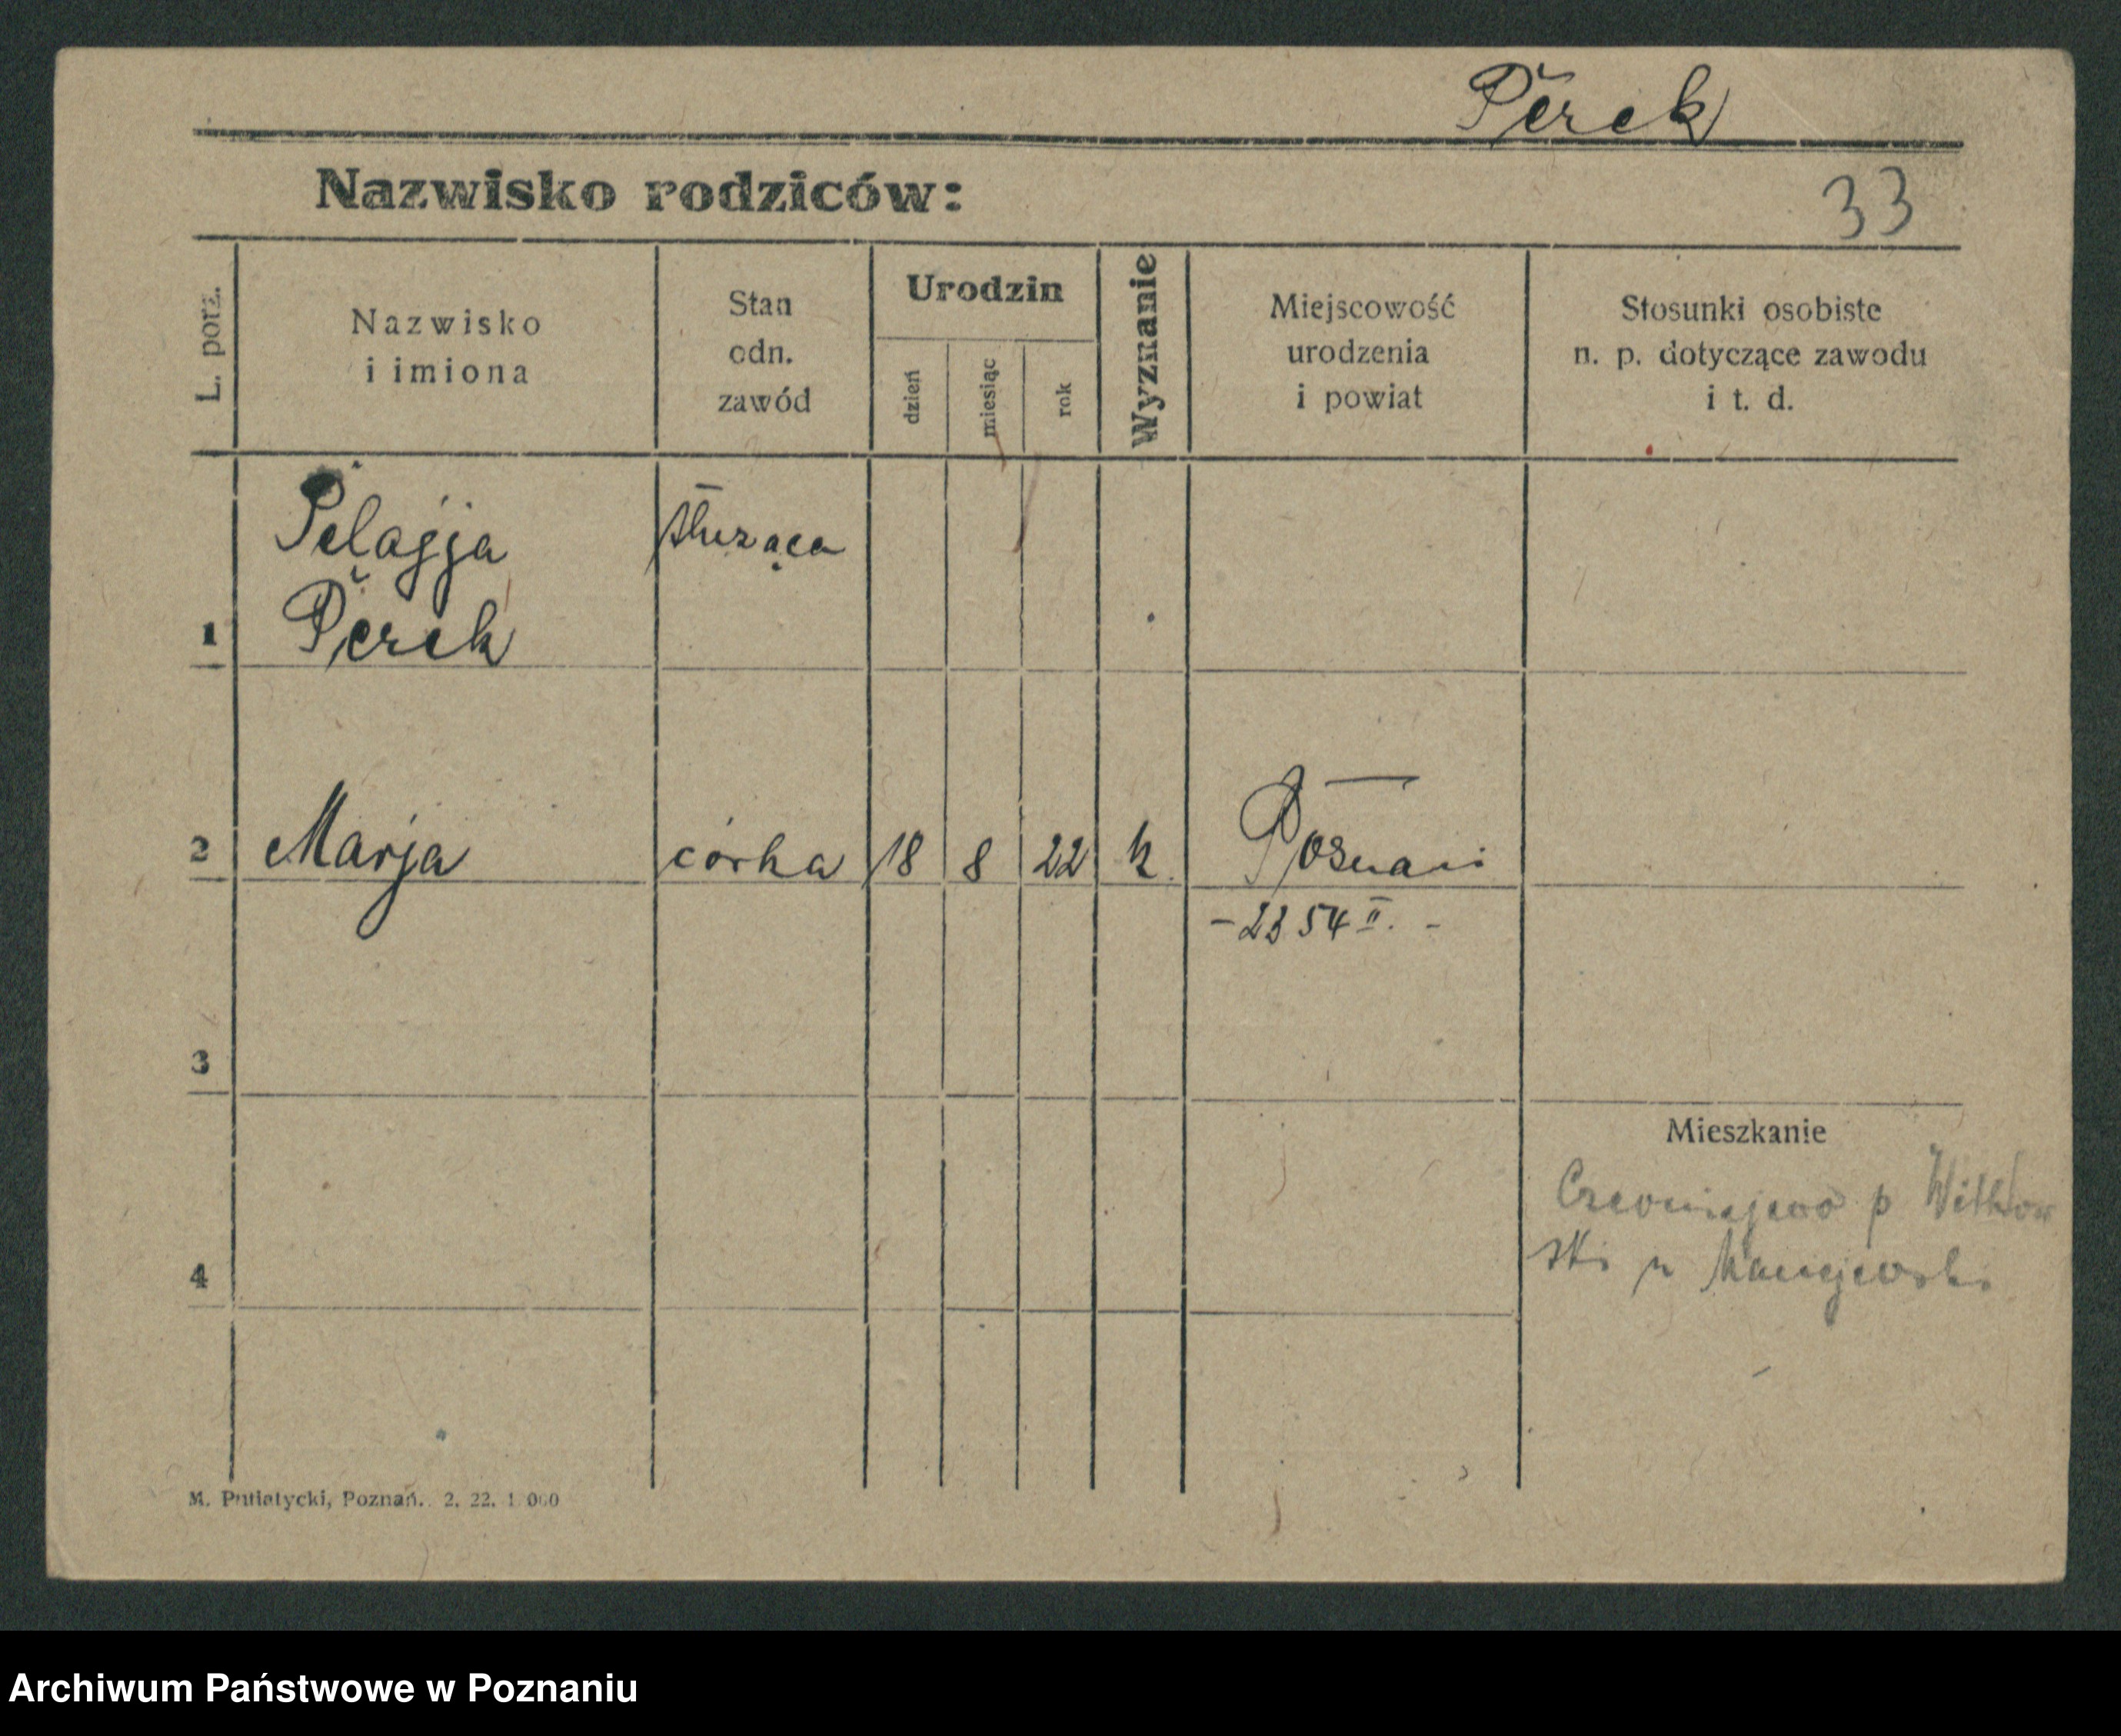 Perek
Nazwisko rodziców:
33
L. porz.
Nazwisko
i imiona
Stan
odn.
zawód
Urodzin
dzień
miesiąc
rok
Wyznanie
Miejscowość
urodzenia
i powiat
Stosunki osobiste
n. p. dotyczące zawodu
i t. d.
Pelagja
służąca
1 Perek
2 Marja córka 18 8 22 k Poznań
- 2354 II. -
3
Mieszkanie
p Witkow
ski u Maciejewski
4
M. Putiatycki, Poznań. 2. 22. 1 000
Archiwum Państwowe w Poznaniu